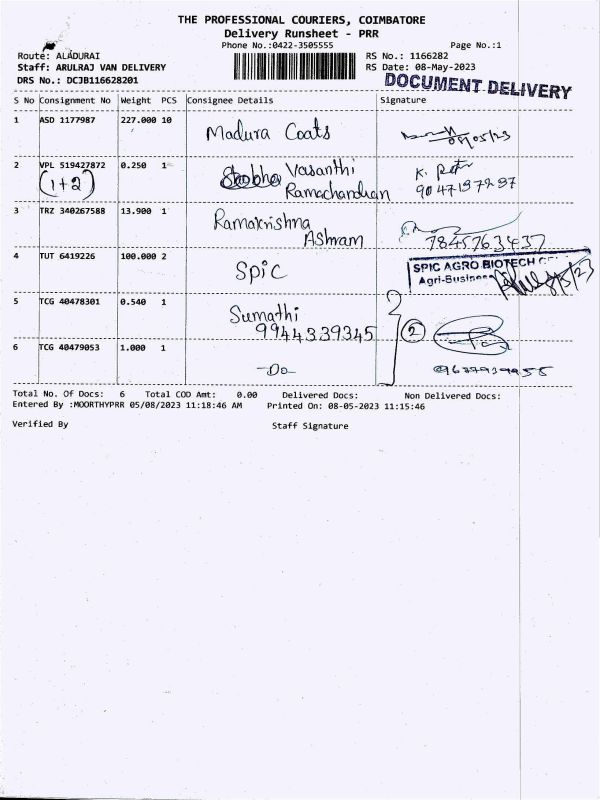 THE PROFESSIONAL COURIERS, COIMBATORE
Delivery Runsheet - PRR
Phone No.:0422-3505555 Page No.:1
Route: ALADURAI RS No.: 1166282
Staff: ARULRAJ VAN DELIVERY RS Date: 08-May-2023
DRS No.: DCJB116628201 DOCUMENT DELIVERY
S No Consignment No Weight PCS Consignee Details Signature
1 ASD 1177987 227.000 10 Madura Coats 08/05/23
2 VPL 519427872 0.250 1 Vasanthi
(1+2) Ramachandran
K.
9047197297
3 TRZ 340267588 13.900 1 Ramakrishna
Ashram 7845763437
4 TUT 6419226 100.000 2 Spic SPIC AGRO BIOTECH
Agri-Business
5 TCG 40478301 0.540 1 Sumathi
9944339345 2
6 TCG 40479053 1.000 1 -Do-
Total No. Of Docs: 6 Total COD Amt: 0.00 Delivered Docs: Non Delivered Docs:
Entered By :MOORTHYPRR 05/08/2023 11:18:46 AM Printed On: 08-05-2023 11:15:46
Verified By Staff Signature